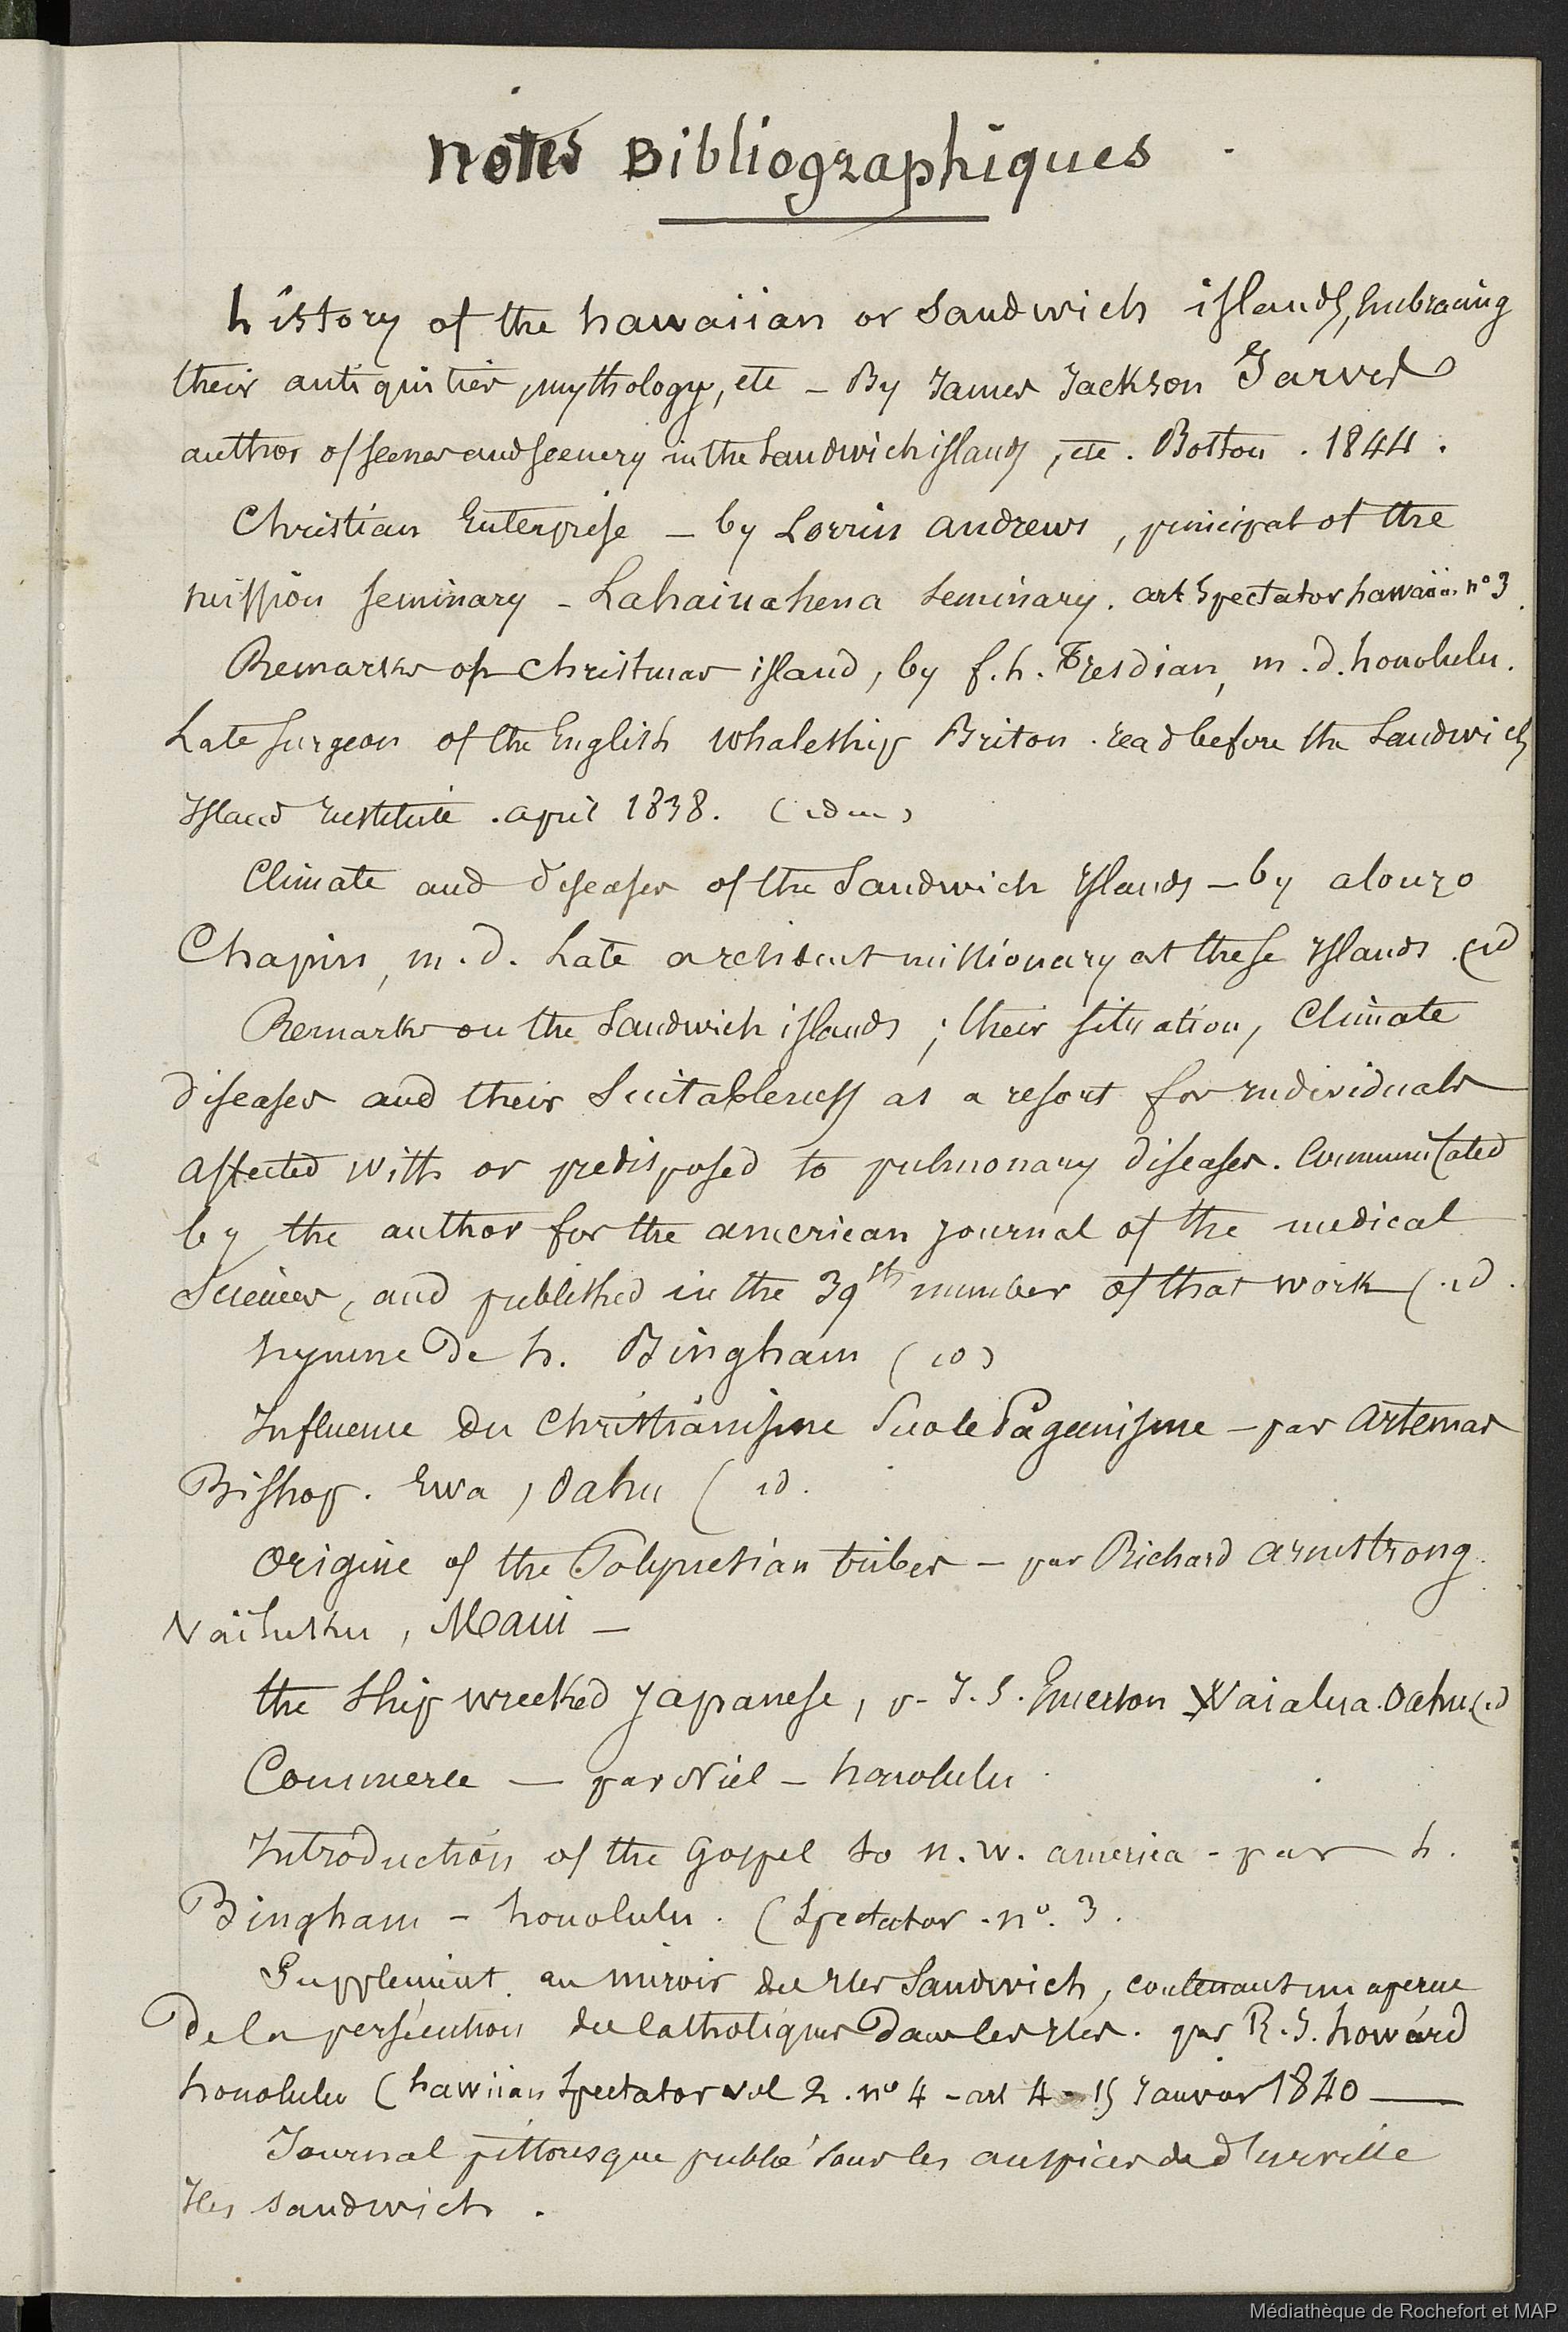 Notes Bibliographiques
history of the hawaiian or Sandwich islands, Embracing
their antiquities, mythology, etc - By James Jackson Jarves
author of scenes and scenery in the Sandwich islands, etc. Boston. 1844.
Christian Enterprise - by Lorrin andrews, principal of the
mission seminary - Lahainahena Seminary. art Spectator hawaiian n° 3.
Remarks on Christmas island, by f. h. Tresdian, m. d. honolulu.
Late surgeon of the English whaleship Briton. read before the Sandwich
Island Institute. april 1838. (idm)
Climate and diseases of the Sandwich Islands - by alonzo
Chapin, m. d. Late a resident missionary at these Islands. (id
Remarks on the Sandwich islands; their situation, Climate
diseases and their Suitableness as a resort for individuals
affected with or predisposed to pulmonary diseases. Communicated
by the author for the american journal of the medical
Sciences, and published in the 39th number of that work (id.
hymne de h. Bingham (id)
Influence du Christianisme sur le Paganisme - par Artemas
Bishop. Ewa, Oahu (id.
Origine of the Polynesian tribes - par Richard armstrong.
Vailuku, Maui -
the Ship wrecked Japanese, p- J. S. Emerson Waialua. Oahu (id
Commerce - par Niel - honolulu
Introduction of the Gospel to n. w. america - par h.
Bingham - honolulu. (Spectator. n°. 3.
Supplement au miroir des Iles Sandwich, contenant un apercu
De la persécution des Catholiques Dans les Iles. par R. J. howard
honolulu (hawiian Spectator vol 2. n° 4 - art 4 - 15 Janvier 1840
Journal pittoresque publié sous les auspices de d'urville
Iles sandwich.
Médiathèque de Rochefort et MAP